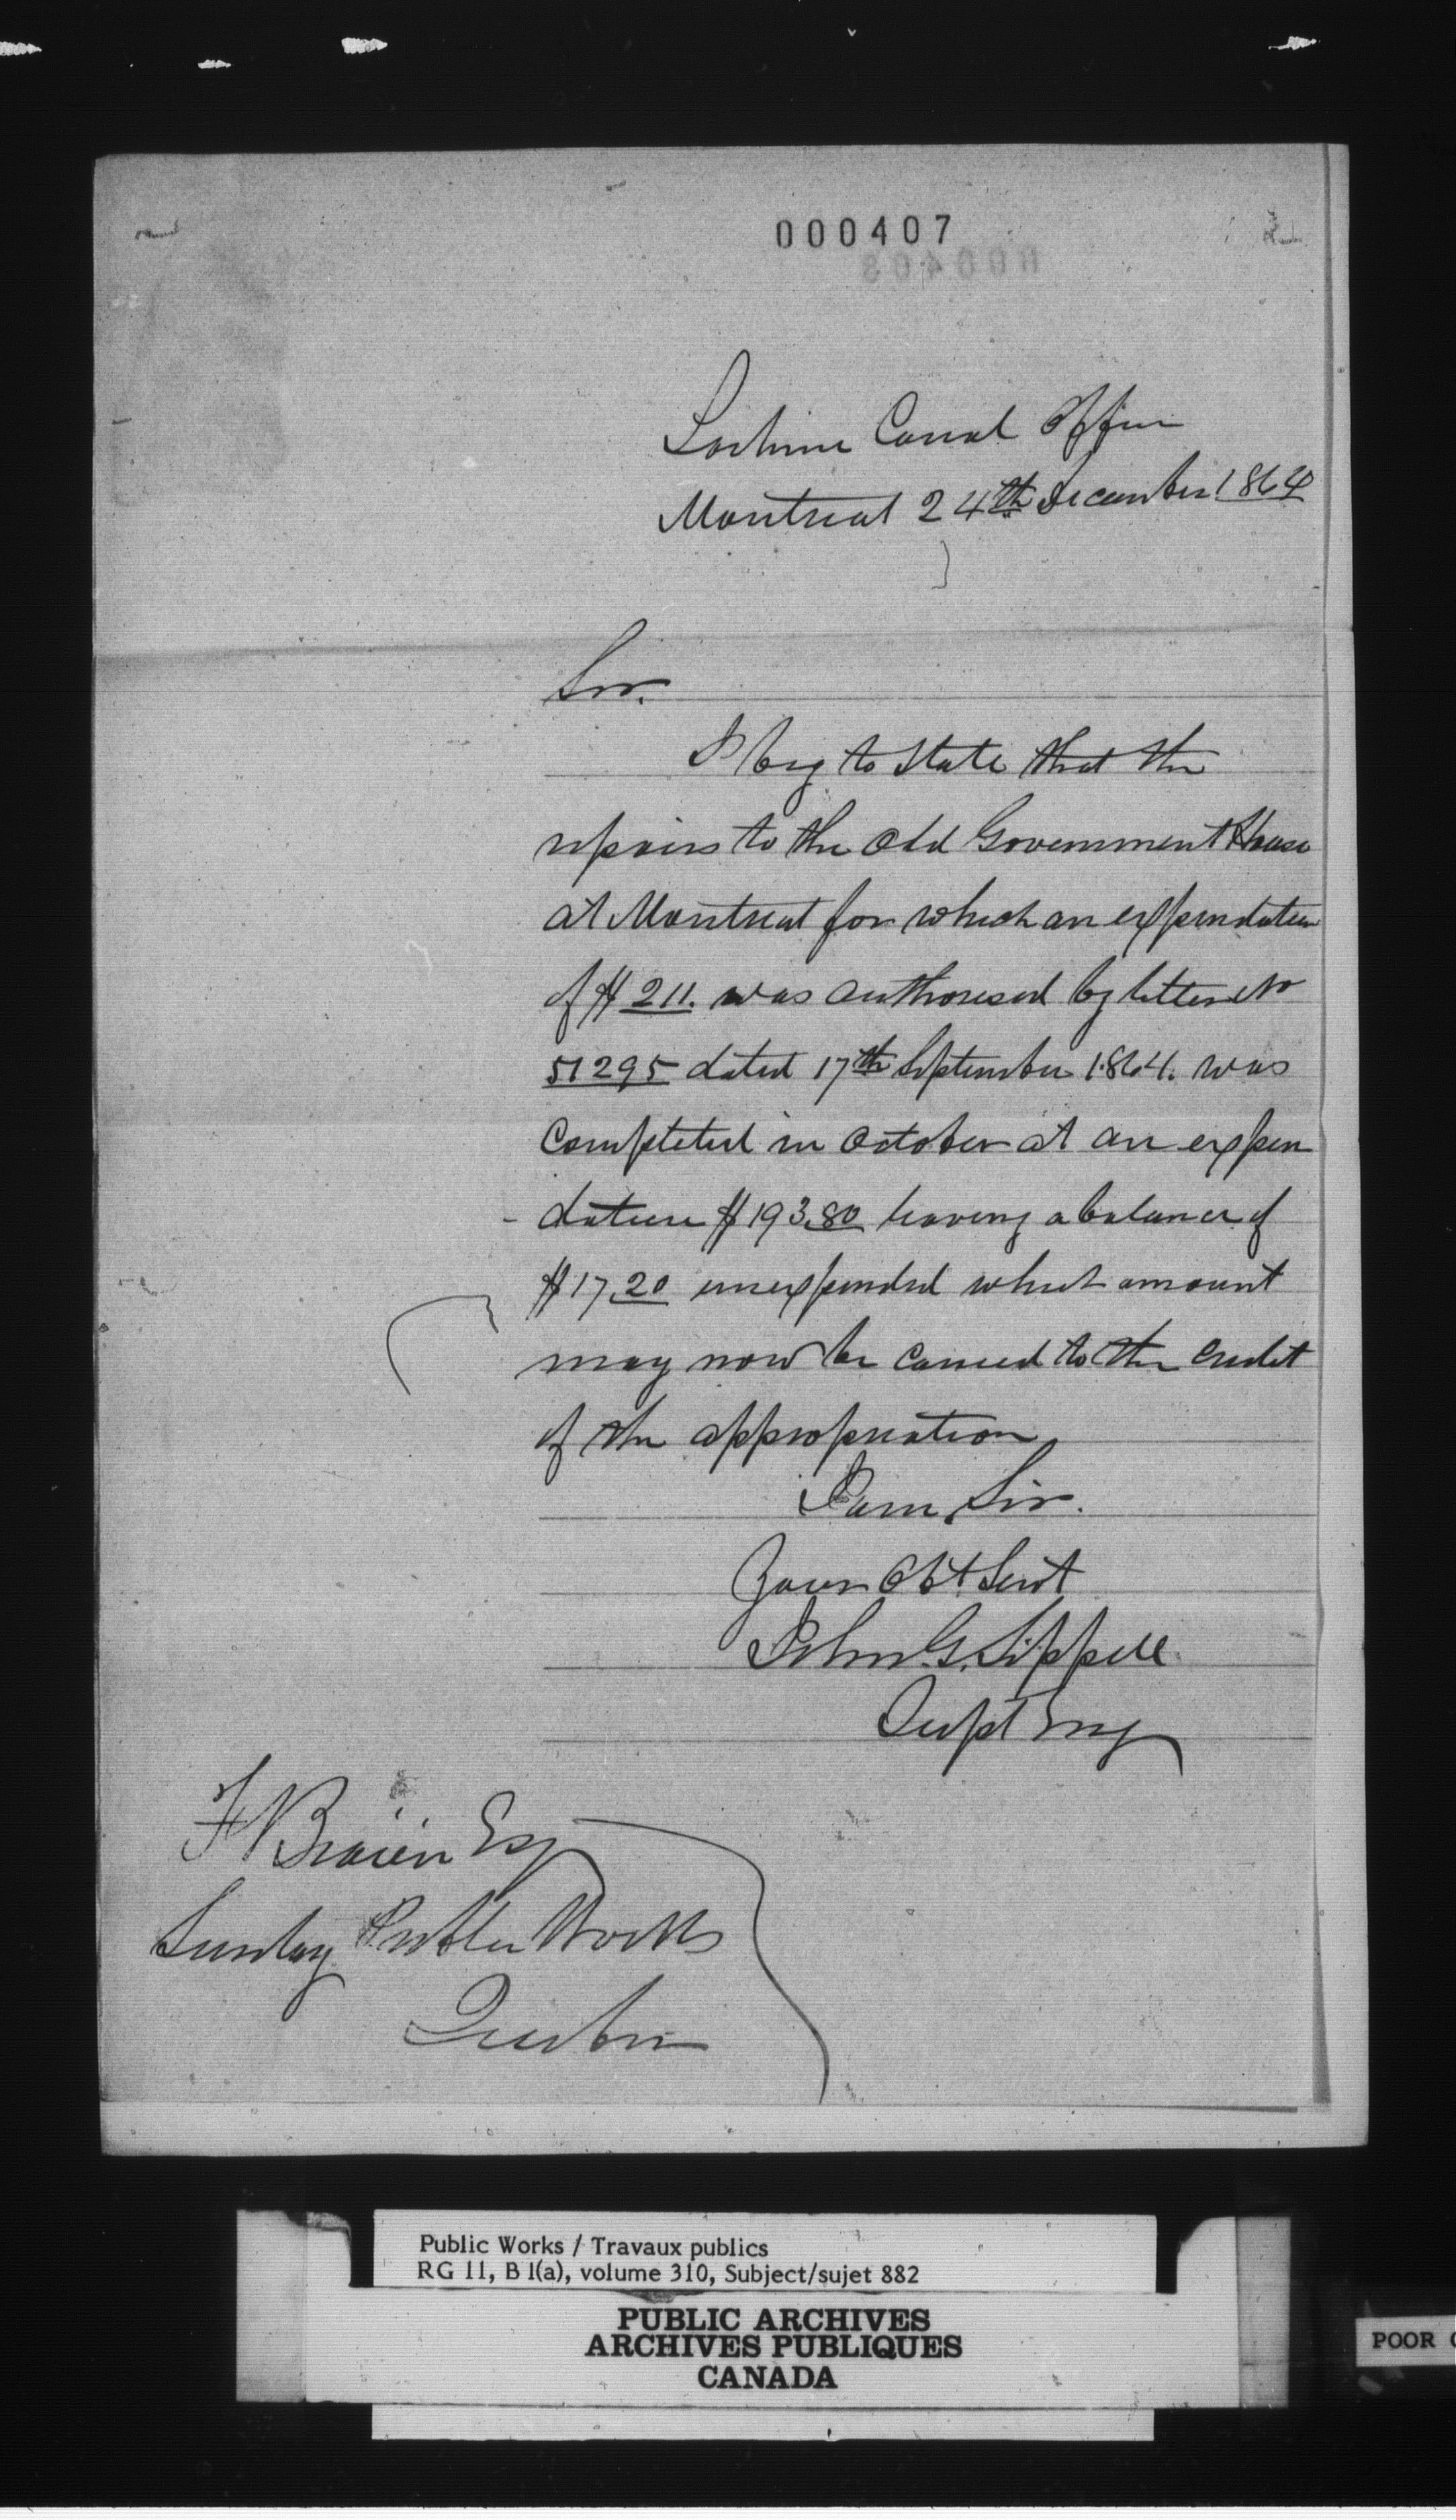 000407
Lachine Canal Office
Montreal 24th December 1864
Sir.
I beg to state that the
repairs to the Old Government House
at Montreal for which an expenditure
of $211. was authorised by letter No
51295 dated 17th September 1864. was
Completed in October at an expen
- diture $193.80 leaving a balance of
$17.20 unexpended which amount
may now be carried to the credit
of the appropriation
I am, Sir.
Your Obt Servt
John G. Sippell
Supt Eng
F Braün Esq
Secretary Public Works
Quebec
Public Works / Travaux publics
RG 11, B 1(a), volume 310, Subject/sujet 882
PUBLIC ARCHIVES
ARCHIVES PUBLIQUES
CANADA
POOR